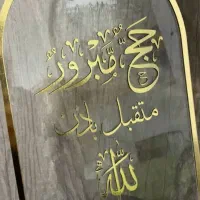 حَجٌّ مَّبْرُورٌ
متقبل بإذن
اللّٰه